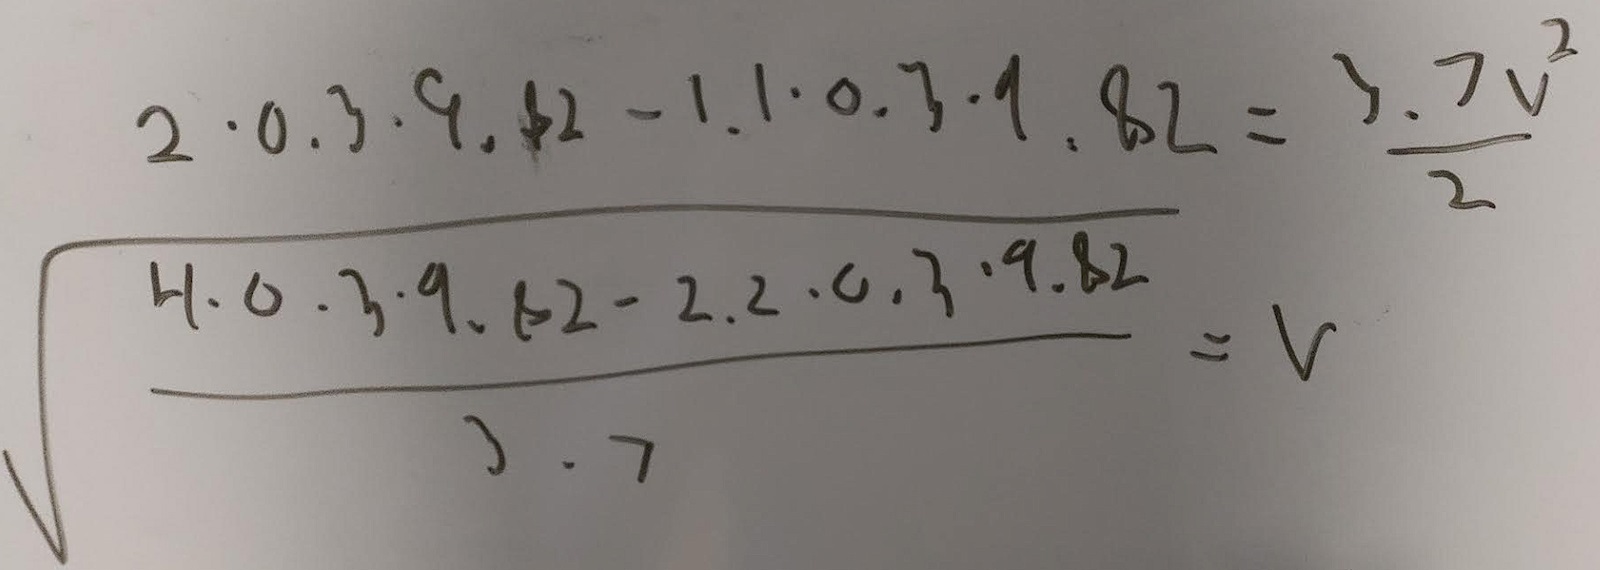 2·0.3·9.82-1.1·0.3·9.82=3.7v²/2
√((4·0.3·9.82-2.2·0.3·9.82)/3.7)=v